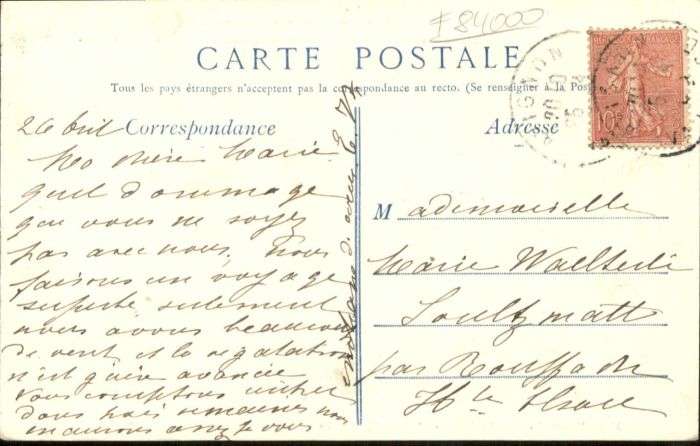 F 84000
CARTE POSTALE
Tous les pays étrangers n'acceptent pas la correspondance au recto. (Se renseigner à la Poste
Correspondance
Adresse
26 Avril
Ma chère Marie
quel dommage
que vous ne soyez
pas avec nous. Nous
faisons un voyage
superbe seulement
nous avons beaucoup
de vent et la végétation
n'est guère avancée
Vous comptons rentrer
dans trois semaines nous
Mademoiselle
Marie
Soultzmatt
par Rouffach
Hte Alsace